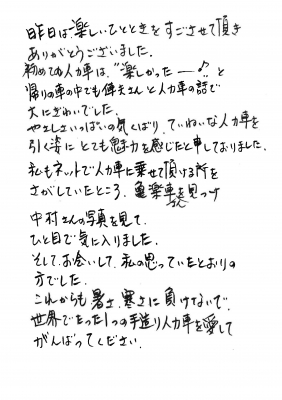 昨日は楽しいひとときをすごさせて頂き
ありがとうございました。
初めての人力車は、"楽しかったー!!" と
帰りの車の中でも偉夫さんと人力車の話で
大にぎわいでした。
やさしさいっぱいの気くばり、ていねいな人力車を
引く姿に とても魅力を感じたと申しておりました。
私もネットで人力車に乗せて頂ける所を
さがしていたところ、亀楽車を見つけ
さん
中村さんの写真を見て、
ひと目で気に入りました。
そして、お会いして、私の思っていたとおりの
方でした。
これからも 暑さ、寒さに負けないで、
世界でたった1つの手造り人力車を愛して
がんばってください。